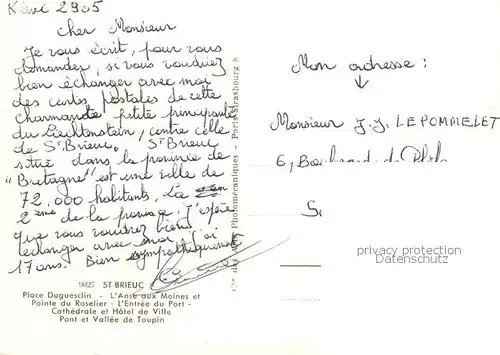 2905
Cher Monsieur
Je vous écrit, pour vous
demander, si vous voudriez
bien échanger avec moi
des cartes postales de cette
charmande petite principauté
du Liechtenstein, contre celle
de St Brieuc. St Brieuc
situé dans la province de
"Bretagne" est une ville de
72.000 habitants. La
2ème de la province. J'espère
que vous voudrez bien
échanger avec moi, j'ai
17 ans. Bien sympathiquement
90227 ST BRIEUC
Place Duguesclin - L'Anse aux Moines et
Pointe du Roselier - L'Entrée du Port -
Cathédrale et Hôtel de Ville
Pont et Vallée de Toupin
Cie des Photomécaniques - Paris-Strasbourg
Mon adresse :
↓
Monsieur J.J. LE POMMELET
6, Boulevard
S
privacy protection
DELCAMPE.NET